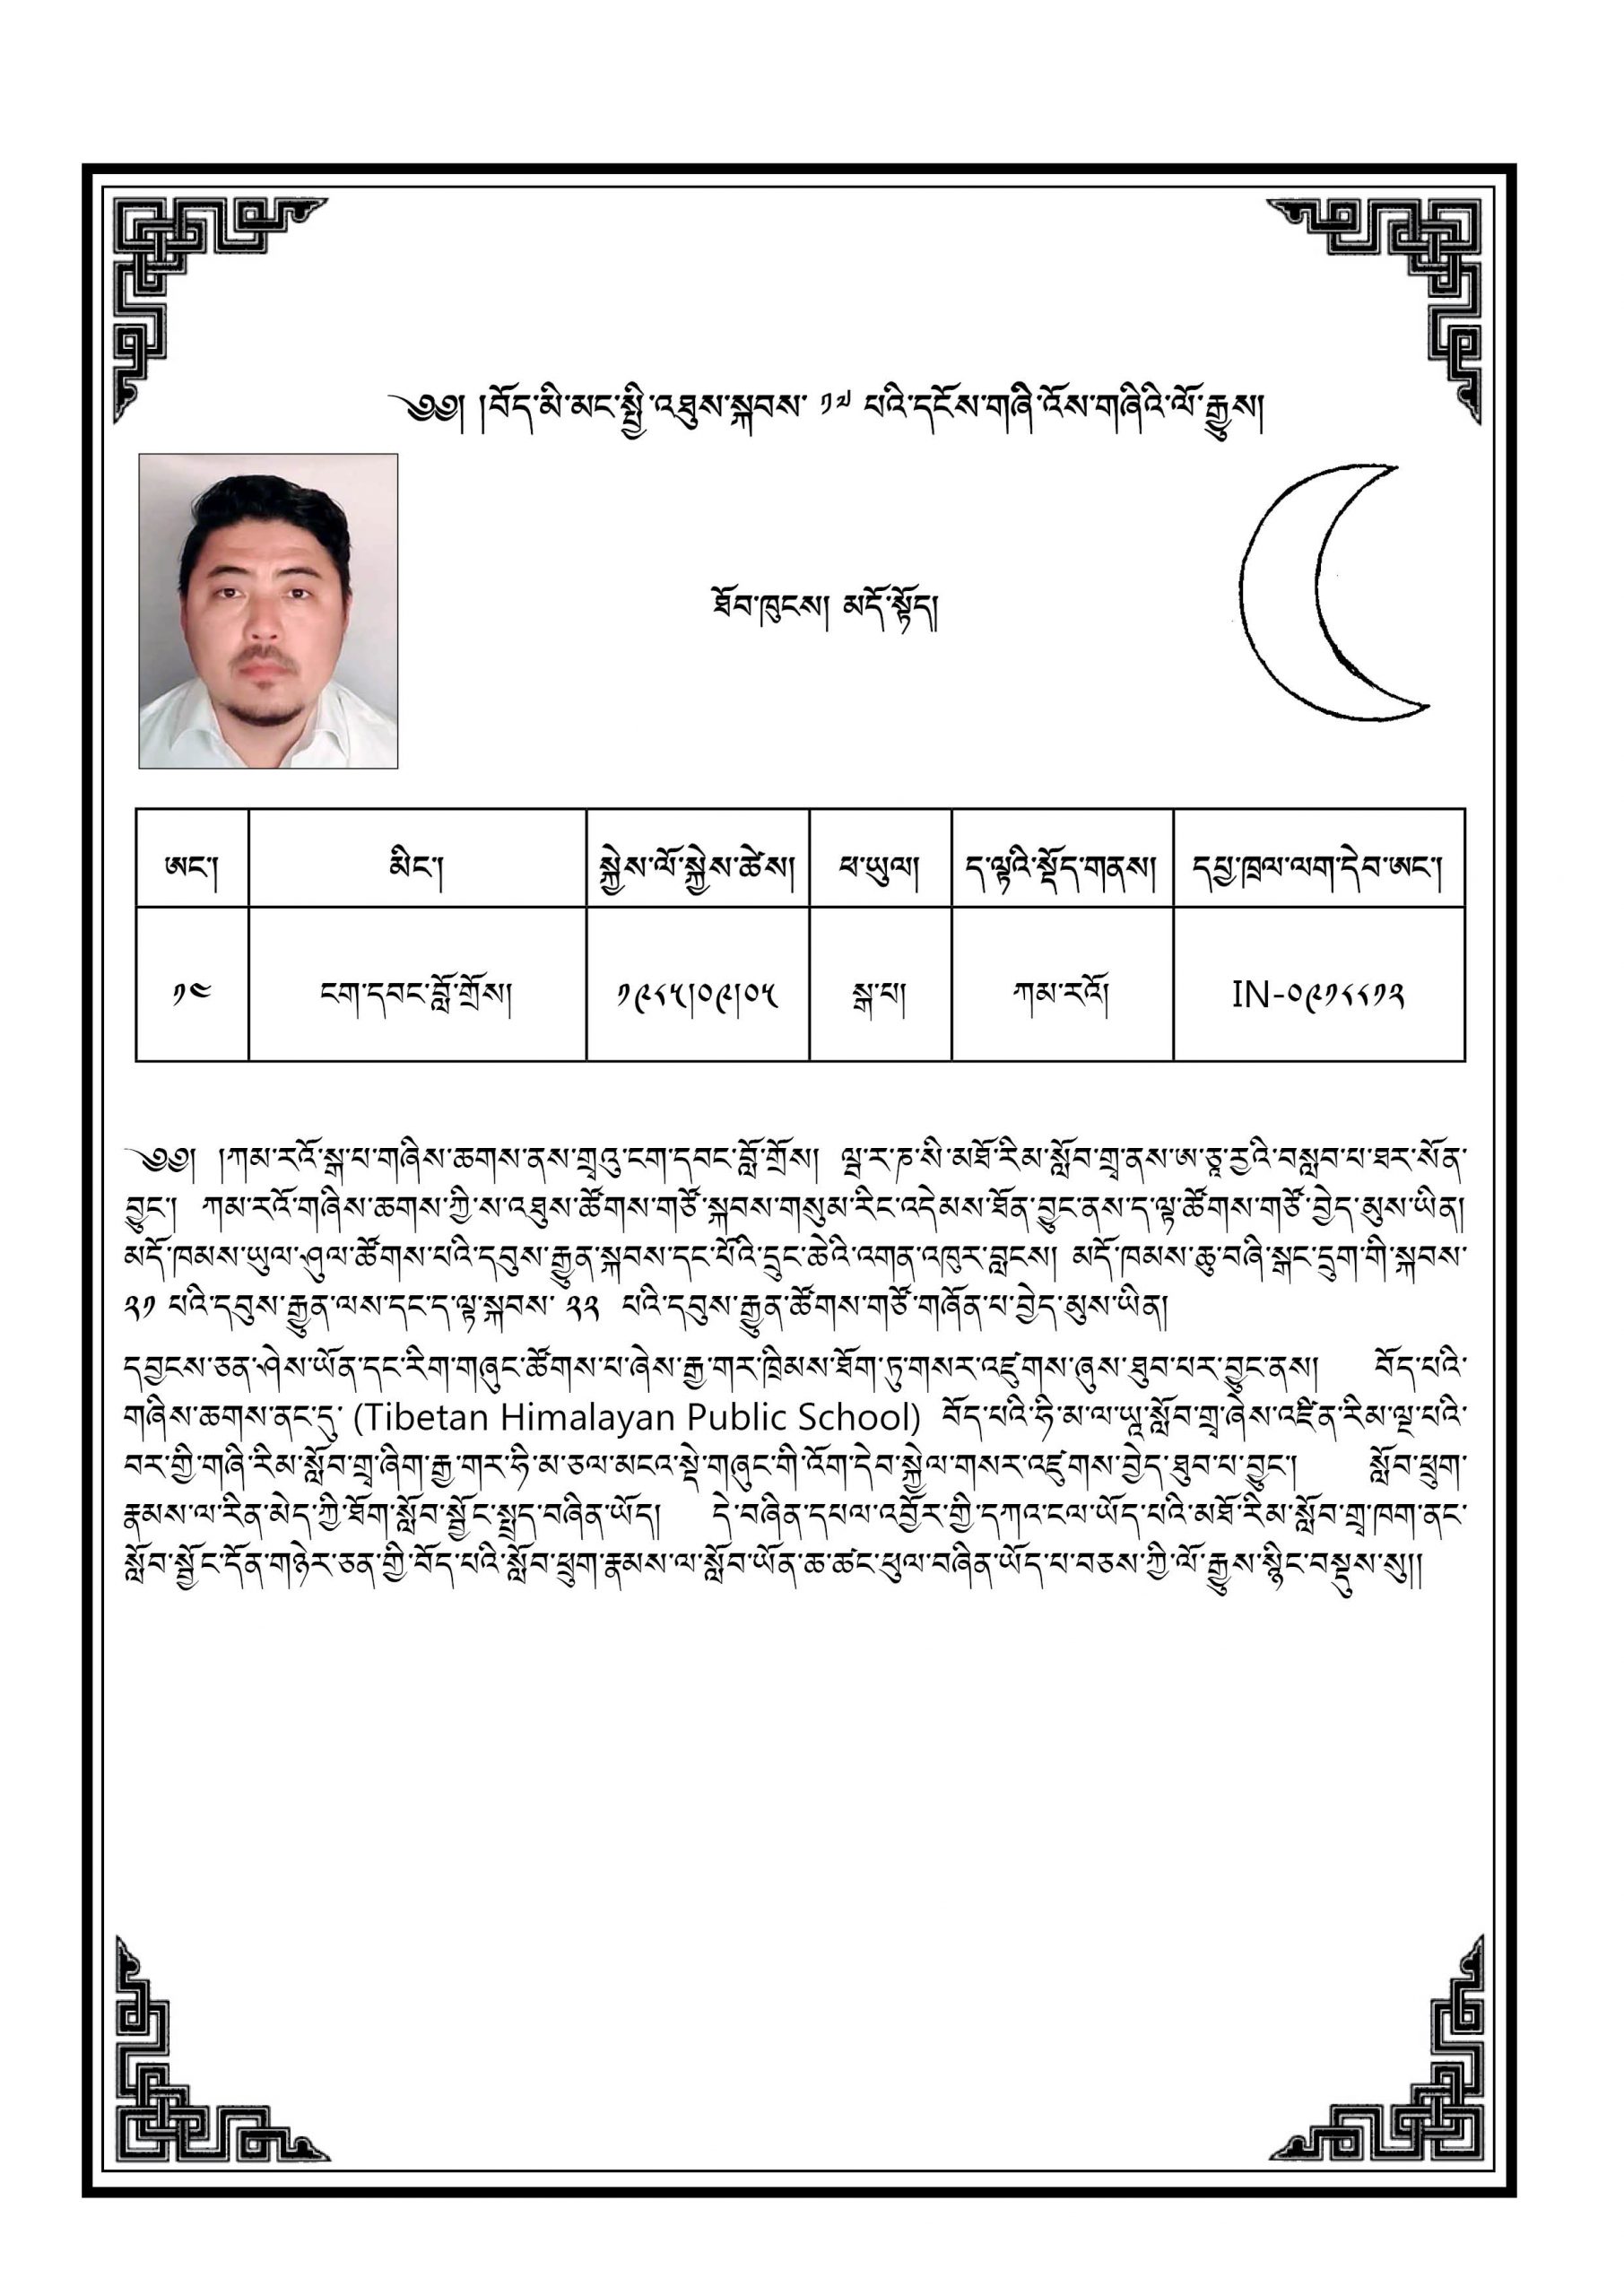 ༄༅། །བོད་མི་མང་སྤྱི་འཐུས་སྐབས་ ༡༧ པའི་དངོས་གཞི་འོས་གཞིའི་ལོ་རྒྱུས།
ཐོབ་ཁུངས། མདོ་སྟོད།
ཨང་། མིང་། སྐྱེས་ལོ་སྐྱེས་ཚེས། ཕ་ཡུལ། ད་ལྟའི་སྡོད་གནས། དཔྱ་ཁྲལ་ལག་དེབ་ཨང་།
༡༤ ངག་དབང་བློ་གྲོས། ༡༩༨༥།༠༩།༠༥ སྒ་པ། ཀམ་རའོ། IN-༠༩༡༨༨༡༢
༄༅། །ཀམ་རའོ་སྒ་པ་གཞིས་ཆགས་ནས་གྲྭའུ་ངག་དབང་བློ་གྲོས། ལྦ་ར་ཎ་སི་མཐོ་རིམ་སློབ་གྲྭ་ནས་ཨ་ཙཱ་རྱའི་བསླབ་པ་ཐར་སོན་
བྱུང་། ཀམ་རའོ་གཞིས་ཆགས་ཀྱི་ས་འཐུས་ཚོགས་གཙོ་སྐབས་གསུམ་རིང་འདེམས་ཐོན་བྱུང་ནས་ད་ལྟ་ཚོགས་གཙོ་བྱེད་མུས་ཡིན།
མདོ་ཁམས་ཡུལ་ཤུལ་ཚོགས་པའི་དབུས་རྒྱུན་སྐབས་དང་པོའི་དྲུང་ཆེའི་འགན་འཁུར་བླངས། མདོ་ཁམས་ཆུ་བཞི་སྒང་དྲུག་གི་སྐབས་
༢༡ པའི་དབུས་རྒྱུན་ལས་དང་ད་ལྟ་སྐབས་ ༢༢ པའི་དབུས་རྒྱུན་ཚོགས་གཙོ་གཞོན་པ་བྱེད་མུས་ཡིན།
དབྱངས་ཅན་ཤེས་ཡོན་དང་རིག་གཞུང་ཚོགས་པ་ཞེས་རྒྱ་གར་ཁྲིམས་ཐོག་ཏུ་གསར་འཛུགས་ཞུས་ཐུབ་པར་བྱུང་ནས། བོད་པའི་
གཞིས་ཆགས་ནང་དུ་ (Tibetan Himalayan Public School) བོད་པའི་ཧི་མ་ལ་ཡཱ་སློབ་གྲྭ་ཞེས་འཛིན་རིམ་ལྔ་པའི་
བར་གྱི་གཞི་རིམ་སློབ་གྲྭ་ཞིག་རྒྱ་གར་ཧི་མ་ཅལ་མངའ་སྡེ་གཞུང་གི་འོག་དེབ་སྐྱེལ་གསར་འཛུགས་བྱེད་ཐུབ་པ་བྱུང་། སློབ་ཕྲུག་
རྣམས་ལ་རིན་མེད་ཀྱི་ཐོག་སློབ་སྦྱོང་སྤྲད་བཞིན་ཡོད། དེ་བཞིན་དཔལ་འབྱོར་གྱི་དཀའ་ངལ་ཡོད་པའི་མཐོ་རིམ་སློབ་གྲྭ་ཁག་ནང་
སློབ་སྦྱོང་དོན་གཉེར་ཅན་གྱི་བོད་པའི་སློབ་ཕྲུག་རྣམས་ལ་སློབ་ཡོན་ཆ་ཚང་ཕུལ་བཞིན་ཡོད་པ་བཅས་ཀྱི་ལོ་རྒྱུས་སྙིང་བསྡུས་སུ།།